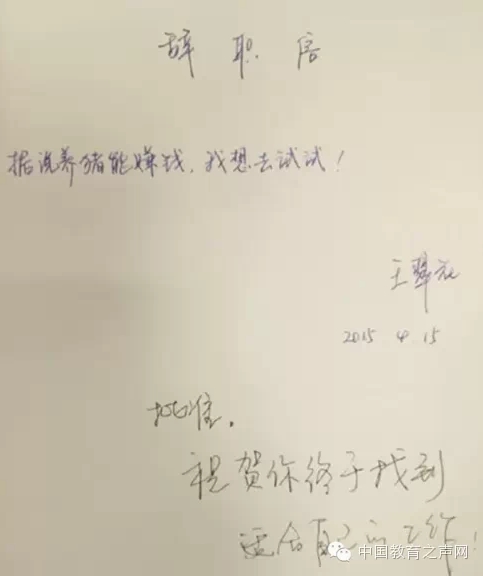 辞职信
据说养猪能赚钱，我想去试试！
王翠花
2015.4.15
批准，
祝贺你终于找到
适合自己的工作！
中国教育之声网